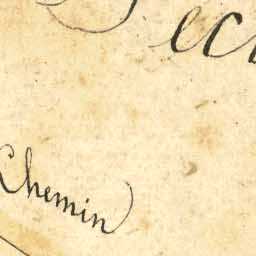 Sec
Chemin